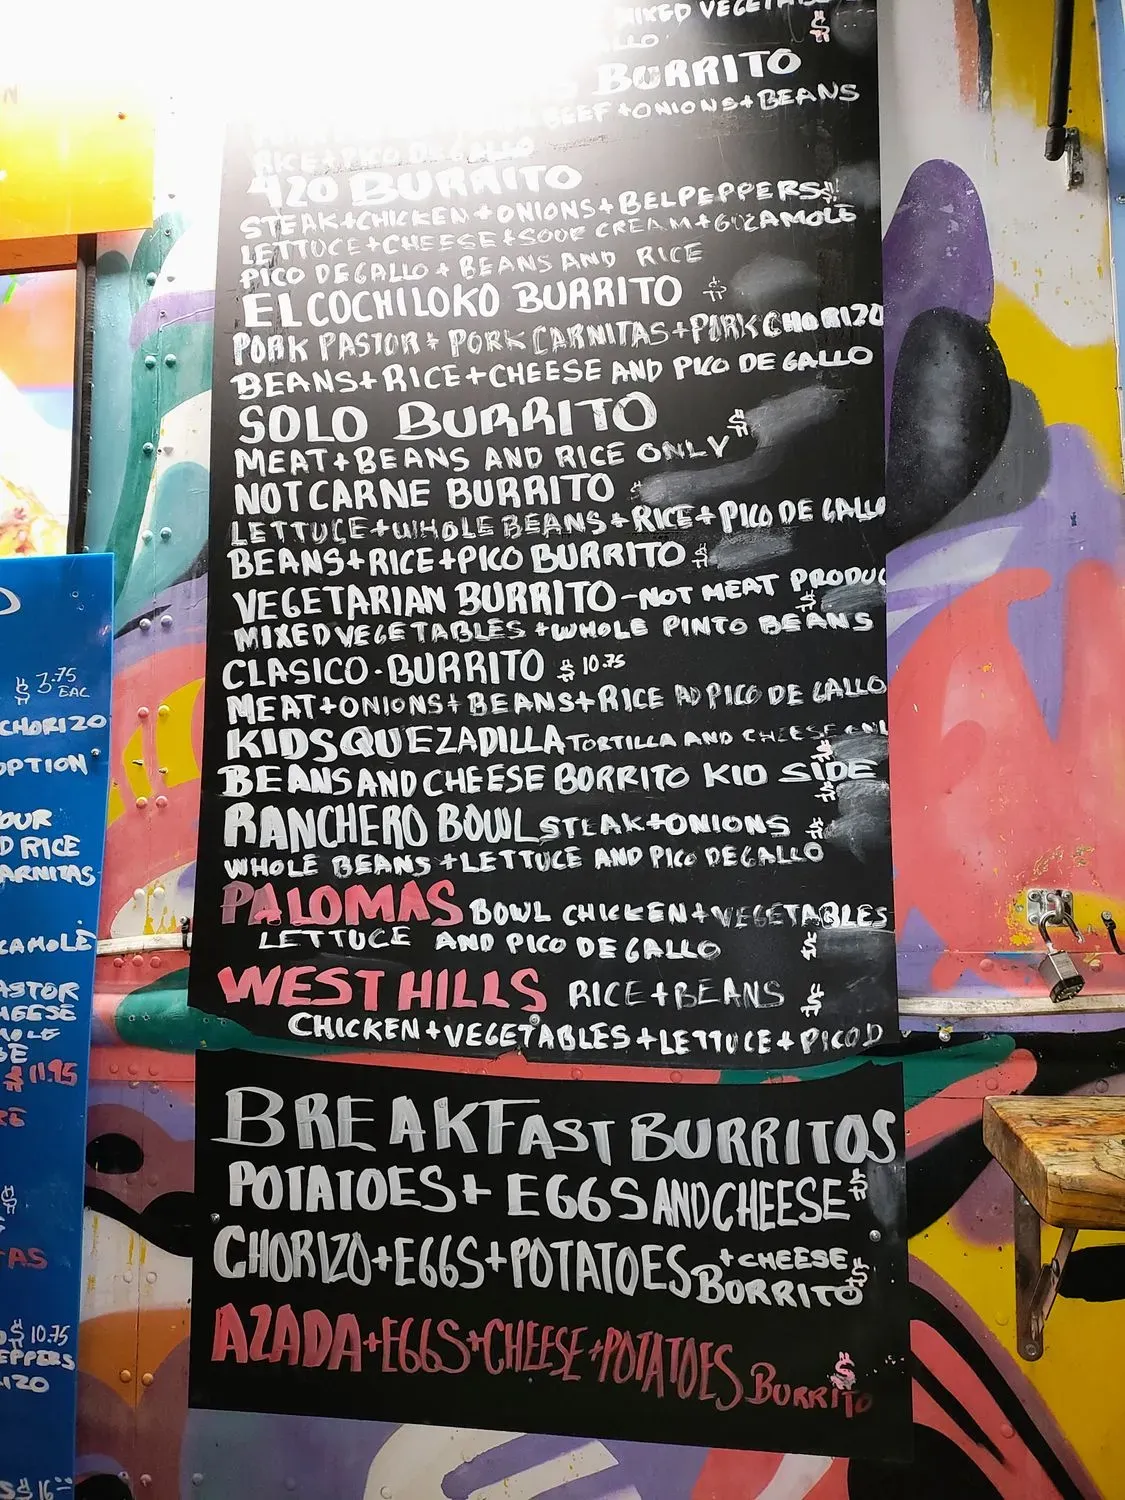 MIXED VEGETAB
LLO
$
BURRITO
BEEF+ONIONS+BEANS
RICE+PICO DE GALLO
420 BURRITO
STEAK+CHICKEN+ONIONS+BELPEPPERS $
LETTUCE+CHEESE+SOUR CREAM+GUZAMOLE
PICO DEGALLO+BEANS AND RICE
EL COCHILOKO BURRITO $
PORK PASTOR+PORK CARNITAS+PORK CHORIZO
BEANS+RICE+CHEESE AND PICO DE GALLO
SOLO BURRITO $
MEAT+BEANS AND RICE ONLY
NOTCARNE BURRITO $
LETTUCE+WHOLE BEANS+RICE+PICO DE GALLO
BEANS+RICE+PICO BURRITO $
VEGETARIAN BURRITO-NOT MEAT PRODUC
$
MIXED VEGETABLES+WHOLE PINTO BEANS
CLASICO-BURRITO $ 10.75
MEAT+ONIONS+BEANS+RICE AD PICO DE GALLO
KIDSQUEZADILLA TORTILLA AND CHEESE ONL
$
BEANS AND CHEESE BORRITO KID SIDE
$
RANCHERO BOWL STEAK+ONIONS $
WHOLE BEANS+LETTUCE AND PICO DEGALLO
PALOMAS BOWL CHICKEN+VEGETABLES
LETTUCE AND PICO DE GALLO $
WEST HILLS RICE+BEANS $
CHICKEN+VEGETABLES+LETTUCE+PICOD
BREAKFAST BURRITOS
POTATOES+EGGS AND CHEESE $
CHORIZO+EGGS+POTATOES +CHEESE $
BORRITO
AZADA+EGGS+CHEESE+POTATOES BURRITO $
$ 3.75
EAC
CHORIZO
OPTION
OUR
D RICE
ARNITAS
CAMOLE
ASTOR
HEESE
MOLE
SE
$ 11.95
RE
$
TAS
$ 10.75
EPPERS
IZO
$ 16